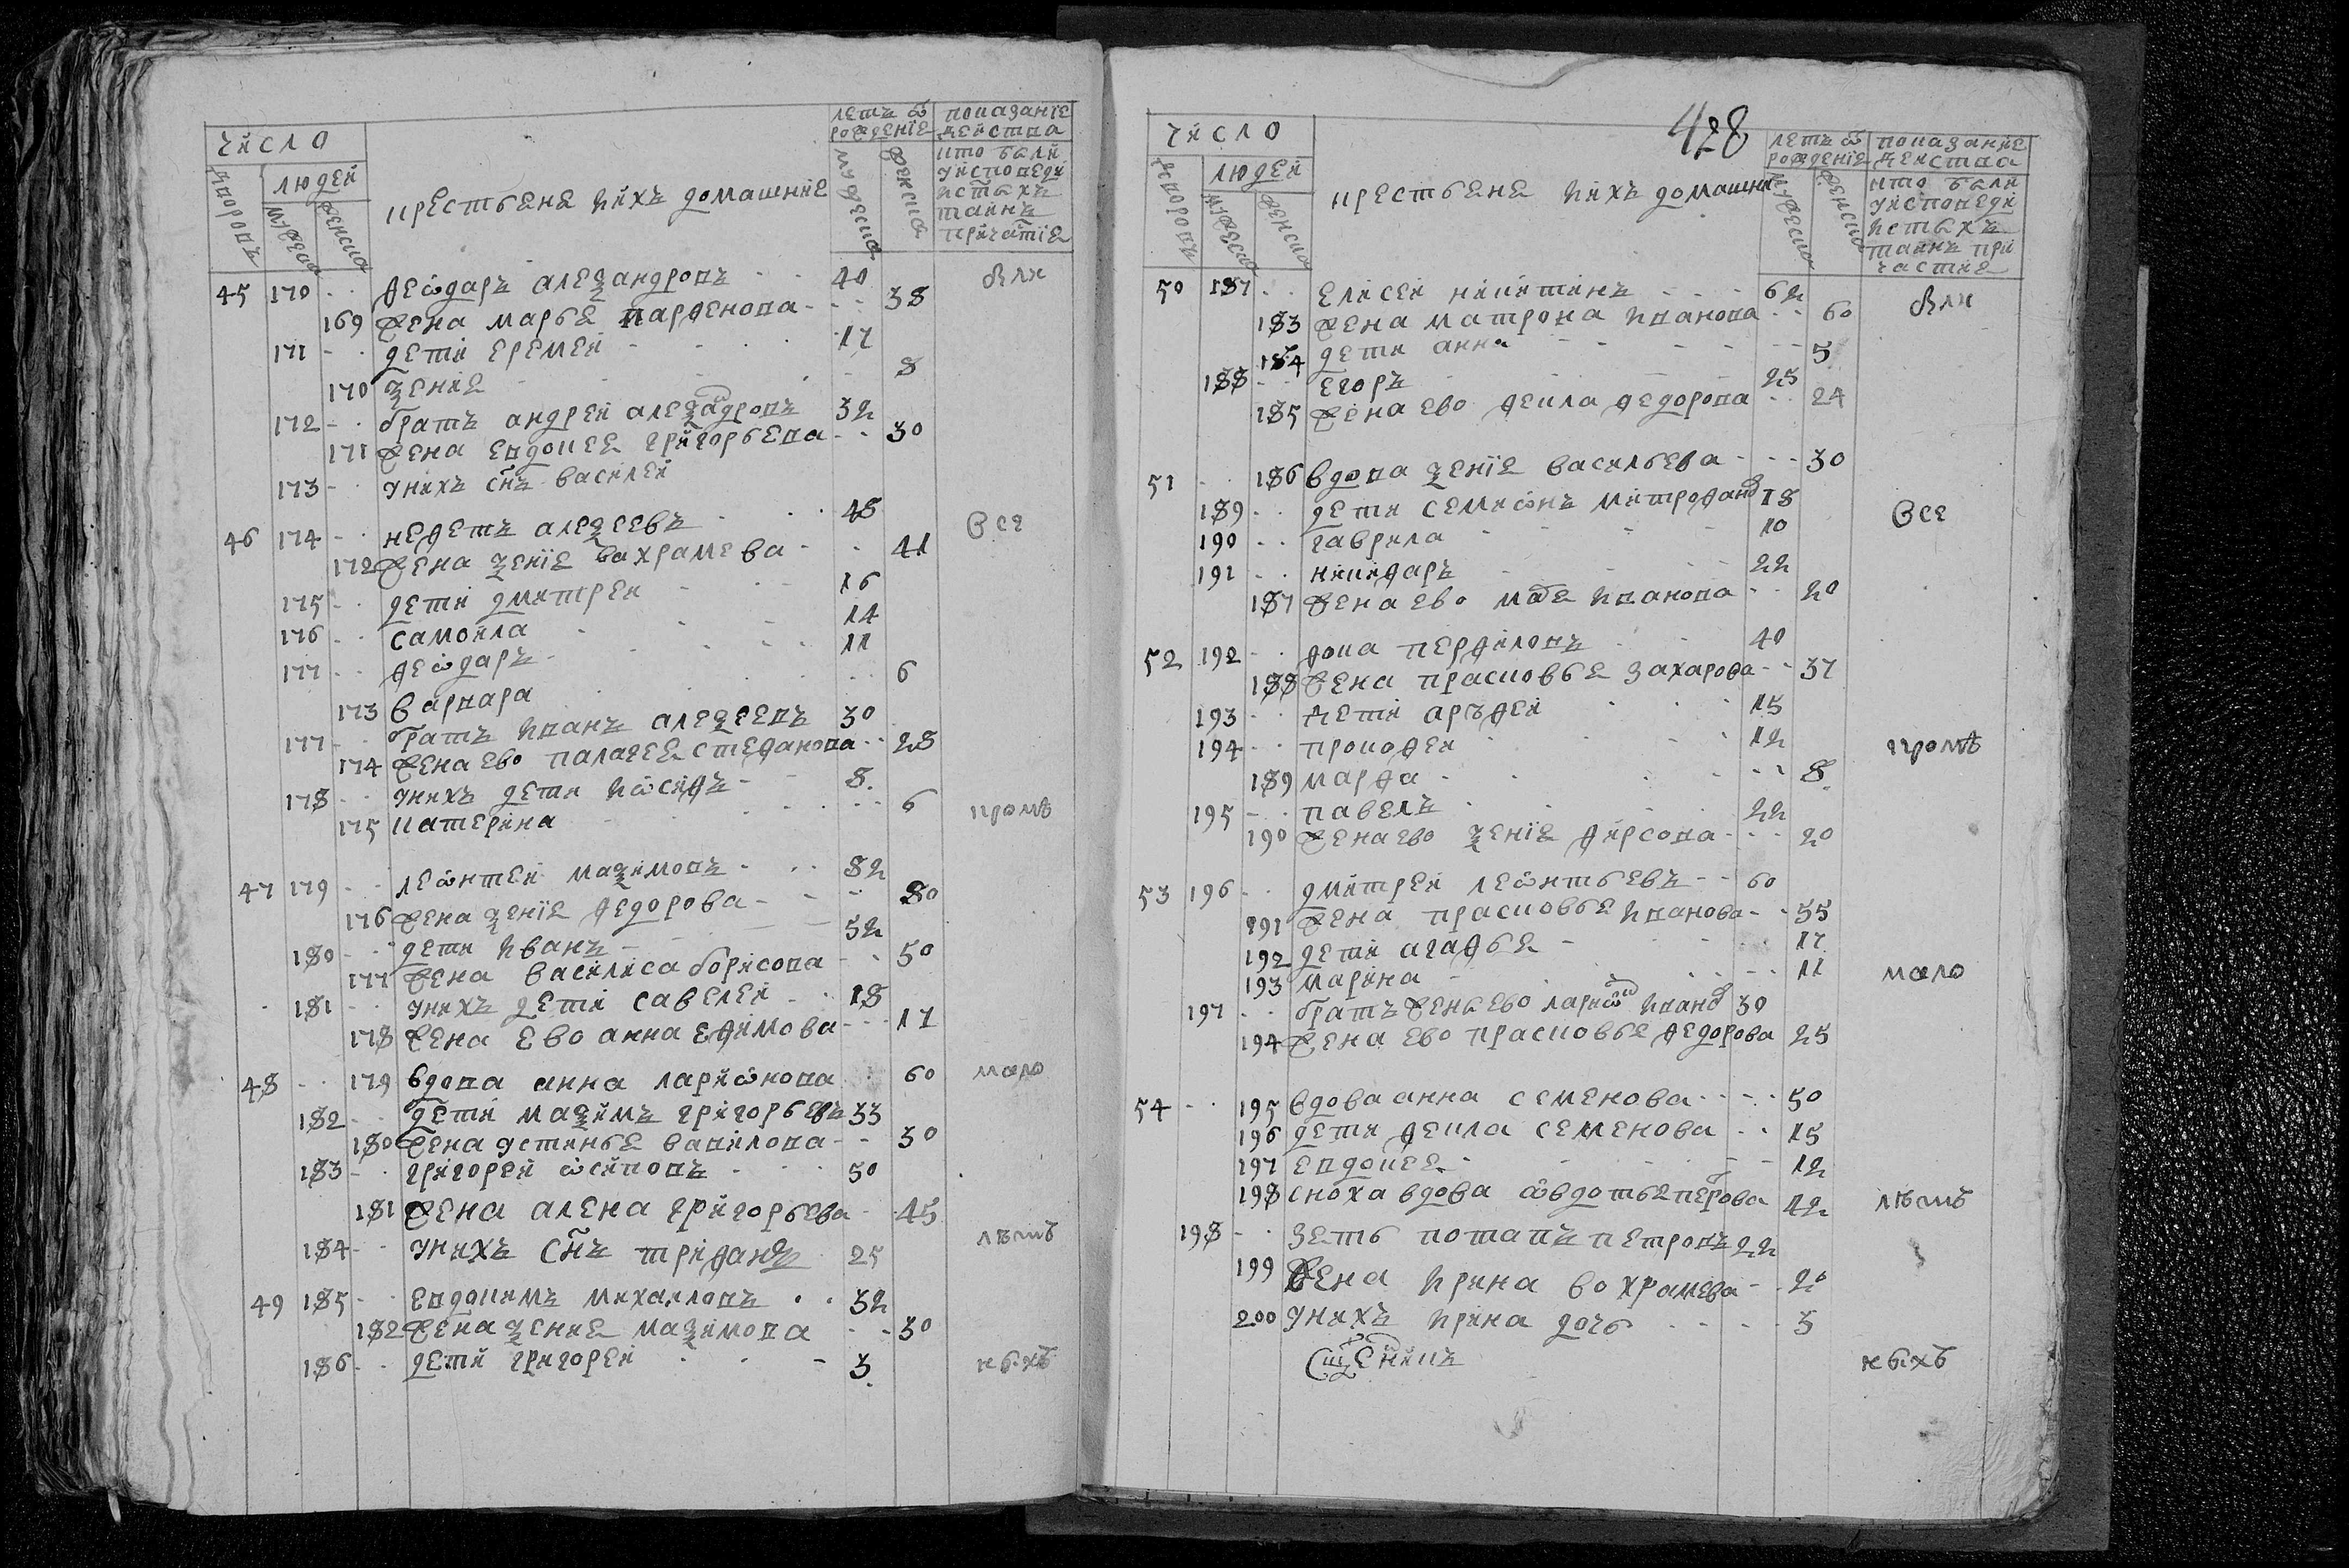 число
дворовъ
людей
мужеска
женска
крестьяне и ихъ домашние
летъ ѿ рождениe
мужеска
женска
показание действа
кто были у исповеди и с̃тыхъ таинъ причастие
45 170 Ѳеѡдаръ алеѯандровъ 40 были
169 жена марье парѳенова 38
171 дети еремей 17
170 ѯение 8
172 братъ андрей алеѯадровъ 32
171 жена евдокее григорьева 30
173 у нихъ сн̃ъ василей
46 174 неѳетъ алеѯеевъ 48 все
172 жена ѯение вахрамева 41
175 дети дмитрей 16
176 самойла 14
177 Ѳеѡдаръ 11
173 варвара 6
177 братъ иванъ алеѯеевъ 30
174 жена ево палагее стеѳанова 28
178 у нихъ дети иѡсиѳъ 8
175 катерина 6 кромѣ
47 179 леѡнтей маѯимовъ 82
176 жена ѯение Ѳедорова 80
180 дети иванъ 52
177 жена василиса борисова 50
181 у нихъ дети савелей 18
178 жена ево анна еѳимова 17
48 179 вдова анна лариѡнова 60 мало
182 дети маѯимъ григорьевъ 33
180 жена устинье вавилова 30
183 григорей ѡсиповъ 50
181 жена алена григорьева 45
184 у нихъ сн̃ъ триѳанъ 25 лѣтъ
49 185 евдокимъ михаиловъ 32
182 жена ѯение маѯимова 30
186 дети григорей 3 кыхъ
428
число
дворовъ
людей
мужеска
женска
крестьяне и ихъ домашни
летъ ѿ рождение
мужеска
женска
показание действа
кто были у исповеди и стыхъ таинъ причастие
50 187 елисей никитинъ 62 были
183 жена матрона иванова 60
184 дети анна 5
188 егоръ 25
185 жена ево Ѳекла Ѳедорова 24
51 186 вдова ѯение васильева 30
189 дети семиѡнъ митроѳанов 18 все
190 гаврила 10
191 никиѳаръ 22
187 жена ево маре иванова 20
52 192 Ѳока перѳиловъ 40
188 жена прасковье захарова 37
193 дети аръѳей 15
194 прокоѳей 12 кромѣ
189 марѳа 8
195 павелъ 22
190 жена ево ѯение Ѳирсова 20
53 196 дмитрей леѡнтьевъ 60
191 жена прасковье иванова 55
192 дети агаѳье 17
193 марина 11 мало
197 братъ жены ево лариѡн иванов 30
194 жена ево прасковье Ѳедорова 25
54 195 вдова анна семенова 50
196 дети Ѳекла семенова 15
197 евдокее 12
198 сноха вдова ѡвдотье петрова 42 лѣтъ
198 зеть потапъ петровъ 22
199 жена ирина вохрамева 20
200 у нихъ ирина дочь 3
Сщ̃енникъ кыхъ